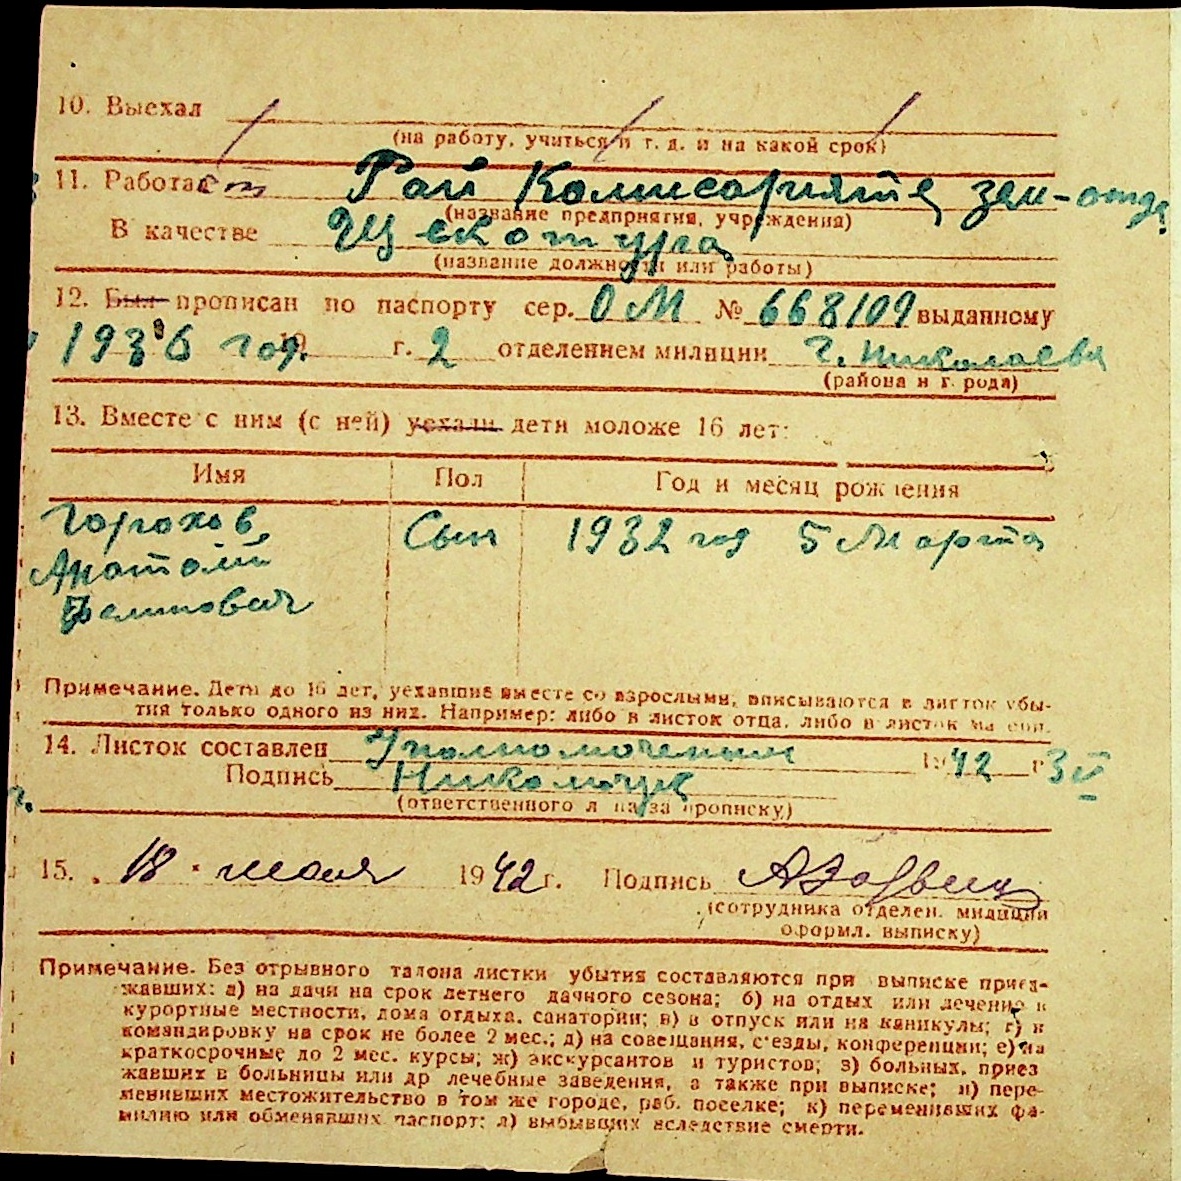 10. Выехал
(на работу, учиться и т. д. и на какой срок)
11. Работает Рай Комисариате, зем-отд.
(название предприятия, учреждения)
В качестве
(название должности или работы)
12. Был прописан по паспорту сер. ОМ № 668109 выданному
1936 год. 19 г. 2 отделением милиции г. Николаева
(района и г. рода)
13. Вместе с ним (с ней) уехали дети моложе 16 лет:
Имя Пол Год и месяц рождения
Горохов Сын 1932 год 5 Марта
Анатолий
Примечание. Дети до 16 лет, уехавшие вместе со взрослыми, вписываются в листок убы-
тия только одного из них. Например: либо в листок отца, либо в листок матери.
14. Листок составлен Уполномоченым 1942 г 3 V
Подпись Николайчук
(ответственного л на за прописку)
15. „ 18 " июля 1942 г. Подпись
(сотрудника отделен. милиции
оформл. выписку)
Примечание. Без отрывного талона листки убытия составляются при выписке приез-
жавших: а) на дачи на срок летнего дачного сезона; б) на отдых или лечение в
курортные местности, дома отдыха, санатории; в) в отпуск или на каникулы; г) в
командировку на срок не более 2 мес.; д) на совещания, с'езды, конференции; е) на
краткосрочные до 2 мес. курсы; ж) экскурсантов и туристов; з) больных, приез
жавших в больницы или др лечебные заведения, а также при выписке; и) пере-
менивших местожительство в том же городе, раб. поселке; к) переменивших фа-
милию или обменявших паспорт; л) выбывших вследствие смерти.